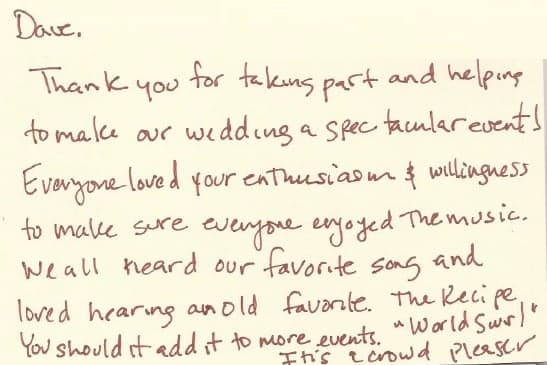 Dave,
Thank you for taking part and helping
to make our wedding a spectacular event!
Everyone loved your enthusiasm & willingness
to make sure everyone enjoyed the music.
We all heard our favorite song and
loved hearing an old favorite. The Recipe,
You should it add it to more events. "World Swirl"
It's a crowd pleaser